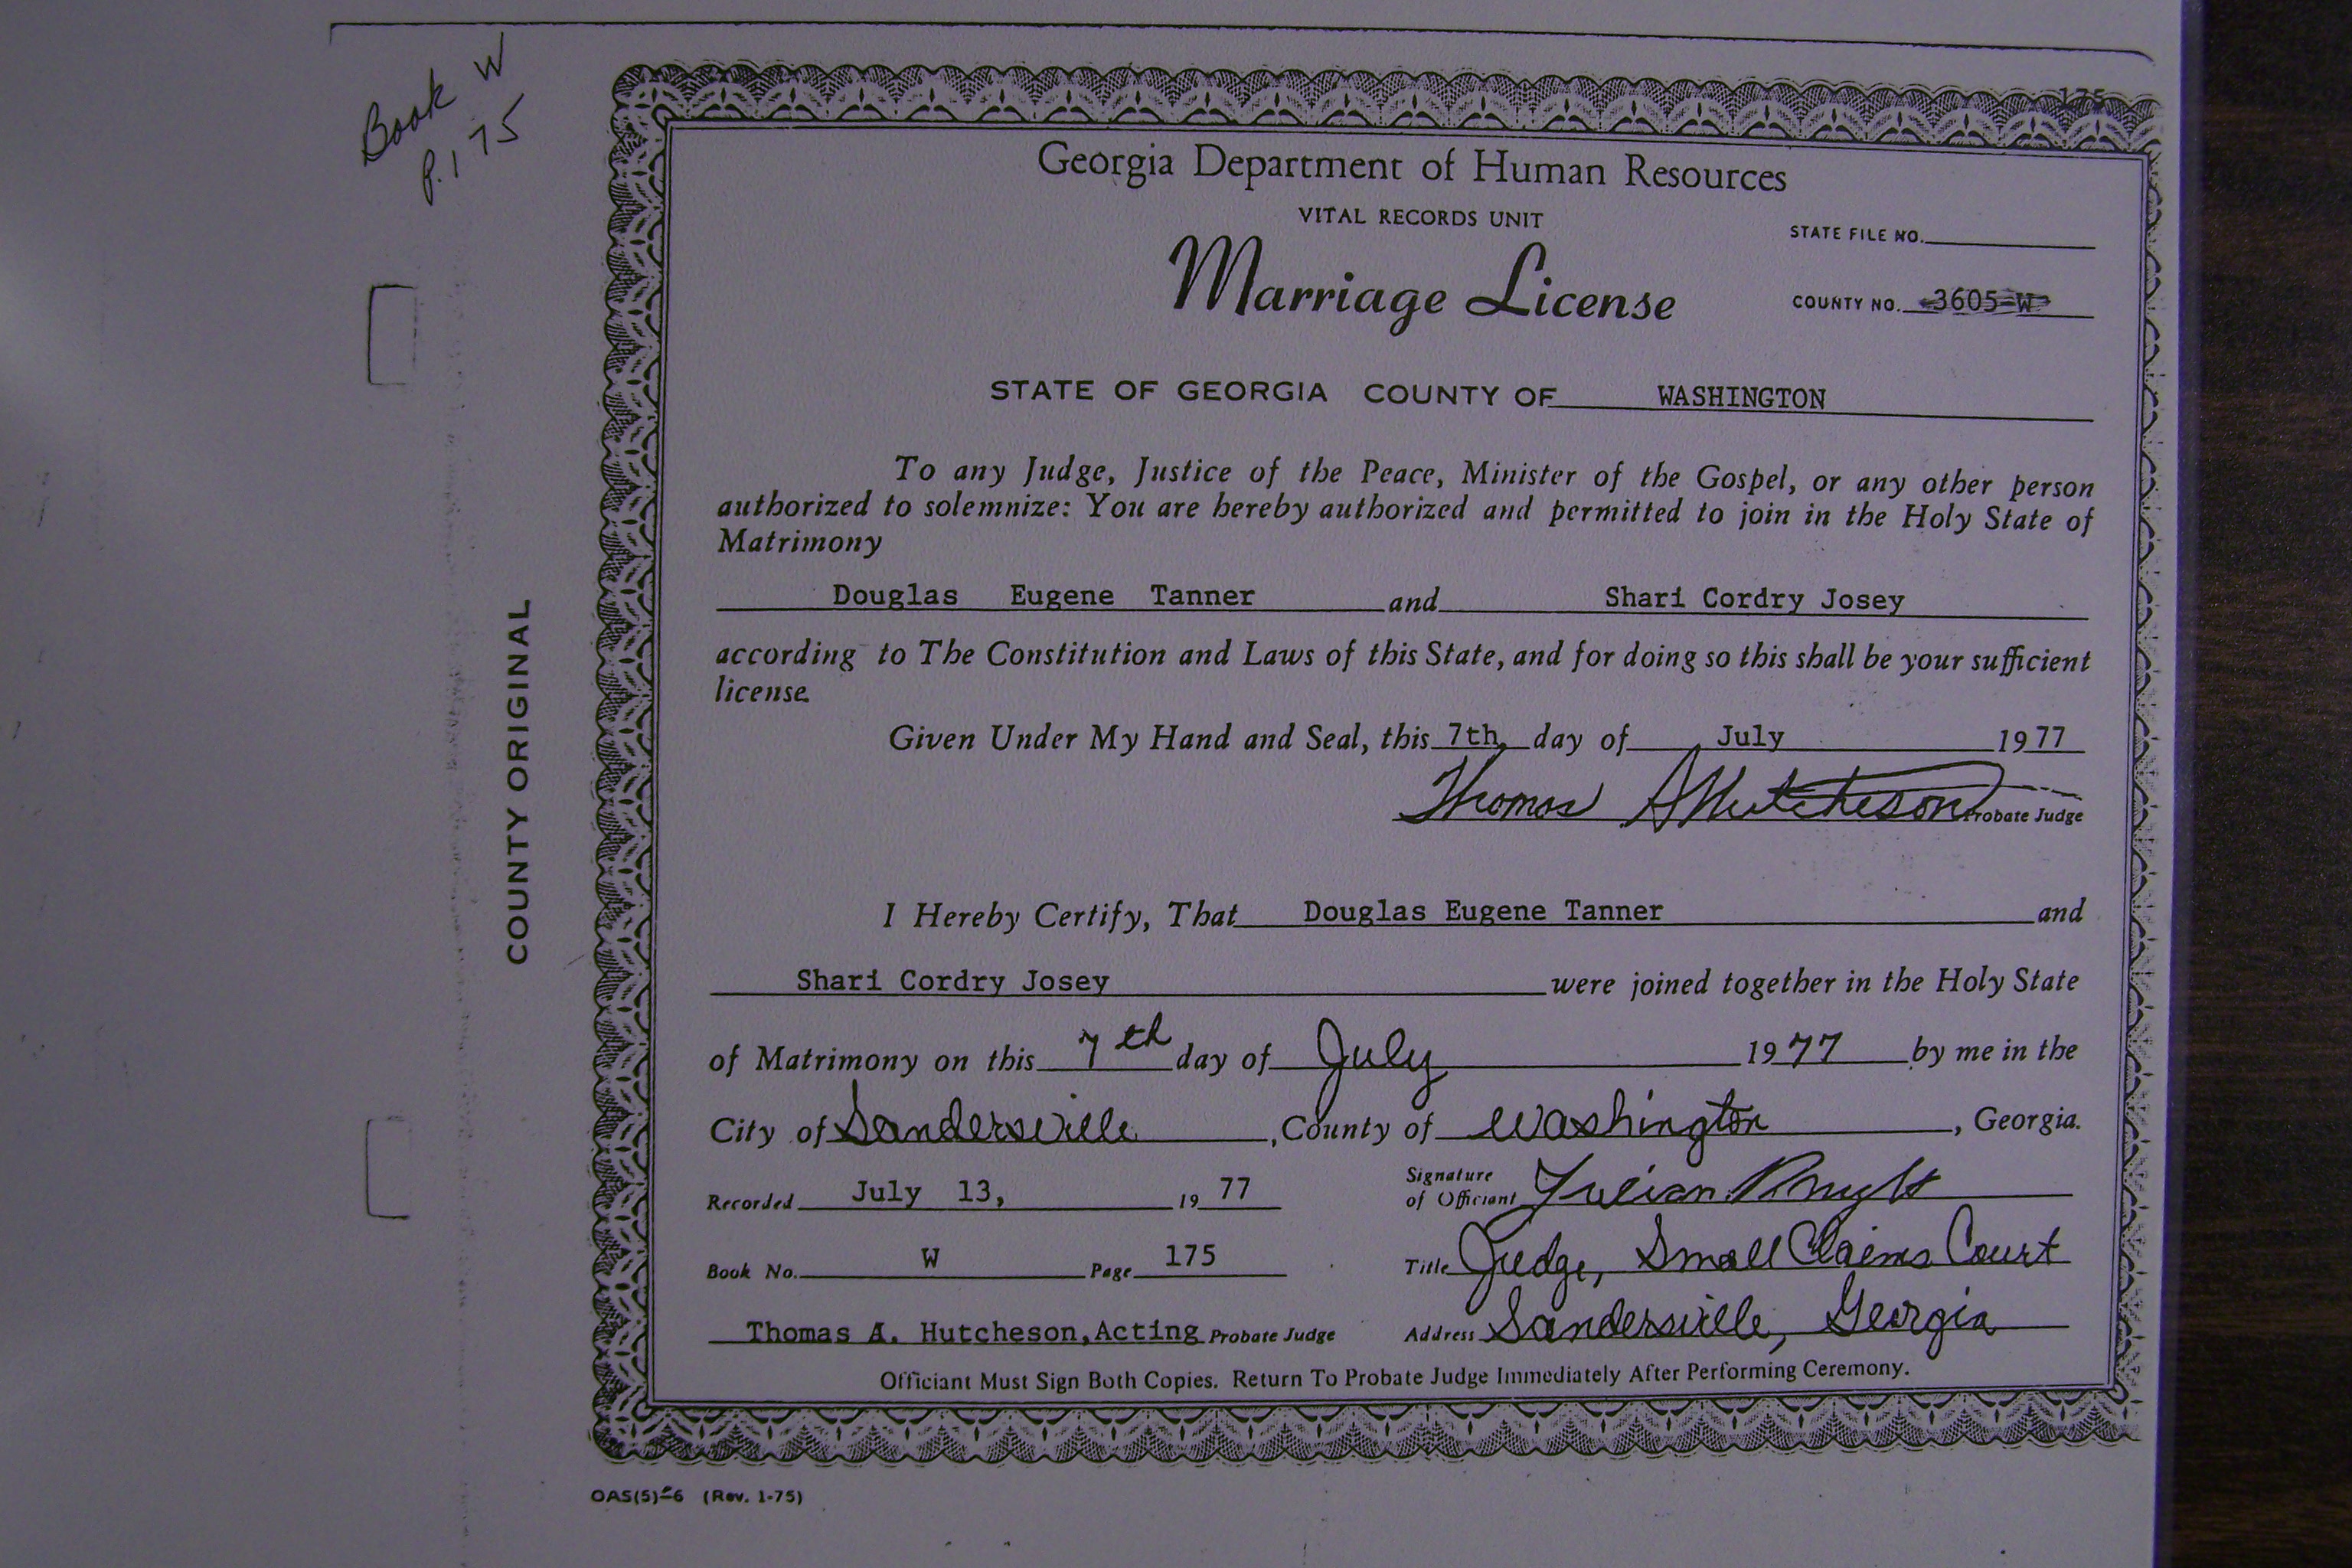 Book W
P. 175
175
Georgia Department of Human Resources
VITAL RECORDS UNIT
STATE FILE NO.
Marriage License
COUNTY NO. 3605-W
STATE OF GEORGIA COUNTY OF WASHINGTON
To any Judge, Justice of the Peace, Minister of the Gospel, or any other person
authorized to solemnize: You are hereby authorized and permitted to join in the Holy State of
Matrimony
Douglas Eugene Tanner and Shari Cordry Josey
according to The Constitution and Laws of this State, and for doing so this shall be your sufficient
license.
Given Under My Hand and Seal, this 7th day of July 1977
Thomas A Hutcheson Probate Judge
COUNTY ORIGINAL
I Hereby Certify, That Douglas Eugene Tanner and
Shari Cordry Josey were joined together in the Holy State
of Matrimony on this 7th day of July 1977 by me in the
City of Sandersville, County of Washington, Georgia.
Recorded July 13, 1977
Signature
of Officiant Julian
Book No. W Page 175
Title Judge, Small Claims Court
Thomas A. Hutcheson, Acting Probate Judge
Address Sandersville, Georgia
Officiant Must Sign Both Copies. Return To Probate Judge Immediately After Performing Ceremony.
OAS(5)-6 (Rev. 1-75)